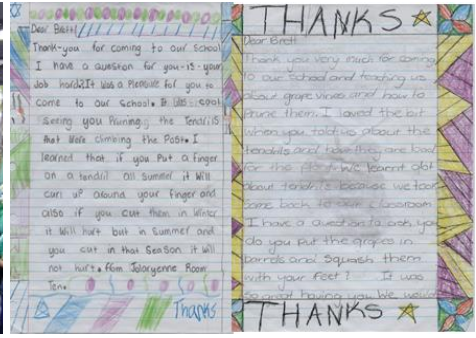 Dear Brett!
Thank-you for coming to our School
I have a question for you-is-your
Job Hard?It Was a Pleasure for you to
come to our school. It Was cool
Seeing you Pruning the Tendrils
that Were climbing the Posts. I
learned that if you Put a finger
on a tendril all summer it Will
curl up around your finger and
also if you cut them in Winter
it Will hurt but in summer and
you cut in that Season it Will
not hurt. from Room
Ten.
Thanks
THANKS
Dear Brett
Thank you very much for coming
to our School and teaching us
about grape vines and how to
prune them. I loved the bit
when you told us about the
tendrils and how they are bad
for the We learnt
about tendrils because we took
some back to our classroom
I have a question to ask you
do you put the grapes in
barrels and Squash them
with your feet? It was
so great having you We
THANKS